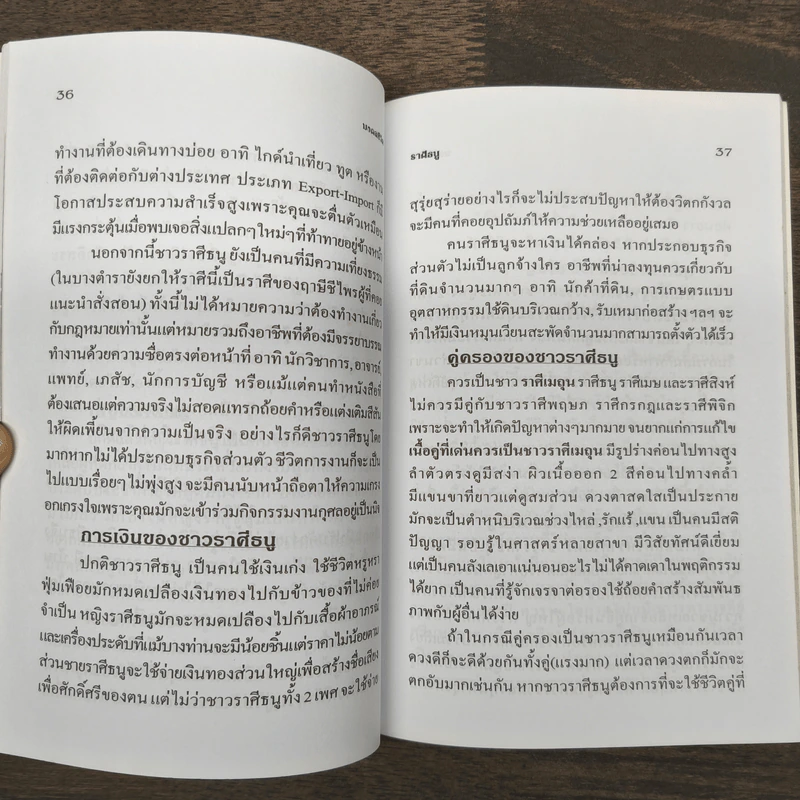 36
ทำงานที่ต้องเดินทางบ่อย อาทิ ไกด์นำเที่ยว ทูต หรืองาน
ที่ต้องติดต่อกับต่างประเทศ ประเภท Export-Import ก็มี
โอกาสประสบความสำเร็จสูงเพราะคุณจะตื่นตัวเหมือน
มีแรงกระตุ้นเมื่อพบเจอสิ่งแปลกๆใหม่ๆที่ท้าทายอยู่ข้างหน้า
นอกจากนี้ชาวราศีธนู ยังเป็นคนที่มีความเที่ยงธรรม
(ในบางตำรายังยกให้ราศีนี้เป็นราศีของฤาษีชีไพรผู้ที่คอย
แนะนำสั่งสอน) ทั้งนี้ไม่ได้หมายความว่าต้องทำงานเกี่ยว
กับกฎหมายเท่านั้นแต่หมายรวมถึงอาชีพที่ต้องมีจรรยาบรรณ
ทำงานด้วยความซื่อตรงต่อหน้าที่ อาทิ นักวิชาการ, อาจารย์,
แพทย์, เภสัช, นักการบัญชี หรือแม้แต่คนทำหนังสือที่
ต้องเสนอแต่ความจริงไม่สอดแทรกถ้อยคำหรือแต่งเติมสีสัน
ให้ผิดเพี้ยนจากความเป็นจริง อย่างไรก็ดีชาวราศีธนูโดย
มากหากไม่ได้ประกอบธุรกิจส่วนตัว ชีวิตการงานก็จะเป็น
ไปแบบเรื่อยๆไม่พุ่งสูง จะมีคนนับหน้าถือตาให้ความเกรง
อกเกรงใจเพราะคุณมักจะเข้าร่วมกิจกรรมงานกุศลอยู่เป็นนิจ
การเงินของชาวราศีธนู
ปกติชาวราศีธนู เป็นคนใช้เงินเก่ง ใช้ชีวิตหรูหรา
ฟุ่มเฟือยมักหมดเปลืองเงินทองไปกับข้าวของที่ไม่ค่อย
จำเป็น หญิงราศีธนูมักจะหมดเปลืองไปกับเสื้อผ้าอาภรณ์
และเครื่องประดับที่แม้บางท่านจะมีน้อยชิ้นแต่ราคาไม่น้อยตาม
ส่วนชายราศีธนูจะใช้จ่ายเงินทองส่วนใหญ่เพื่อสร้างชื่อเสียง
เพื่อศักดิ์ศรีของตน แต่ไม่ว่าชาวราศีธนูทั้ง 2 เพศ จะใช้จ่าย
ราศีธนู
37
สุรุ่ยสุร่ายอย่างไรก็จะไม่ประสบปัญหาให้ต้องวิตกกังวล
จะมีคนที่คอยอุปถัมภ์ให้ความช่วยเหลืออยู่เสมอ
คนราศีธนูจะหาเงินได้คล่อง หากประกอบธุรกิจ
ส่วนตัวไม่เป็นลูกจ้างใคร อาชีพที่น่าลงทุนควรเกี่ยวกับ
ที่ดินจำนวนมากๆ อาทิ นักค้าที่ดิน, การเกษตรแบบ
อุตสาหกรรมใช้ดินบริเวณกว้าง, รับเหมาก่อสร้าง ฯลฯ จะ
ทำให้มีเงินหมุนเวียนสะพัดจำนวนมากสามารถตั้งตัวได้เร็ว
คู่ครองของชาวราศีธนู
ควรเป็นชาว ราศีเมถุน ราศีธนู ราศีเมษ และราศีสิงห์
ไม่ควรมีคู่กับชาวราศีพฤษภ ราศีกรกฎและราศีพิจิก
เพราะจะทำให้เกิดปัญหาต่างๆมากมาย จนยากแก่การแก้ไข
เนื้อคู่ที่เด่นควรเป็นชาวราศีเมถุน มีรูปร่างค่อนไปทางสูง
ลำตัวตรงดูมีสง่า ผิวเนื้อออก 2 สีค่อนไปทางคล้ำ
มีแขนขาที่ยาวแต่ดูสมส่วน ดวงตาสดใสเป็นประกาย
มักจะเป็นตำหนิบริเวณช่วงไหล่ ,รักแร้ ,แขน เป็นคนมีสติ
ปัญญา รอบรู้ในศาสตร์หลายสาขา มีวิสัยทัศน์ดีเยี่ยม
แต่เป็นคนลังเลเอาแน่นอนอะไรไม่ได้คาดเดาในพฤติกรรม
ได้ยาก เป็นคนที่รู้จักเจรจาต่อรองใช้ถ้อยคำสร้างสัมพันธ
ภาพกับผู้อื่นได้ง่าย
ถ้าในกรณีคู่ครองเป็นชาวราศีธนูเหมือนกันเวลา
ดวงดีก็จะดีด้วยกันทั้งคู่(แรงมาก) แต่เวลาดวงตกก็มักจะ
ตกอับมากเช่นกัน หากชาวราศีธนูต้องการที่จะใช้ชีวิตคู่ที่